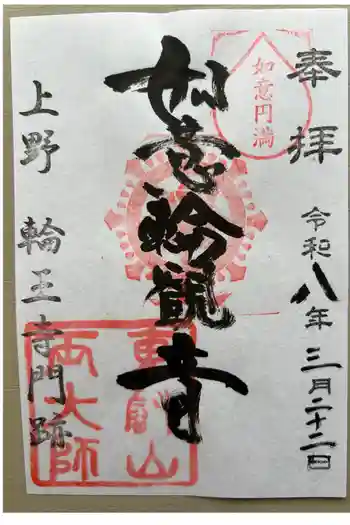 奉拝
令和八年三月二十二日
如意円満
如意輪観音
上野 輪王寺門跡
東叡山
両大師